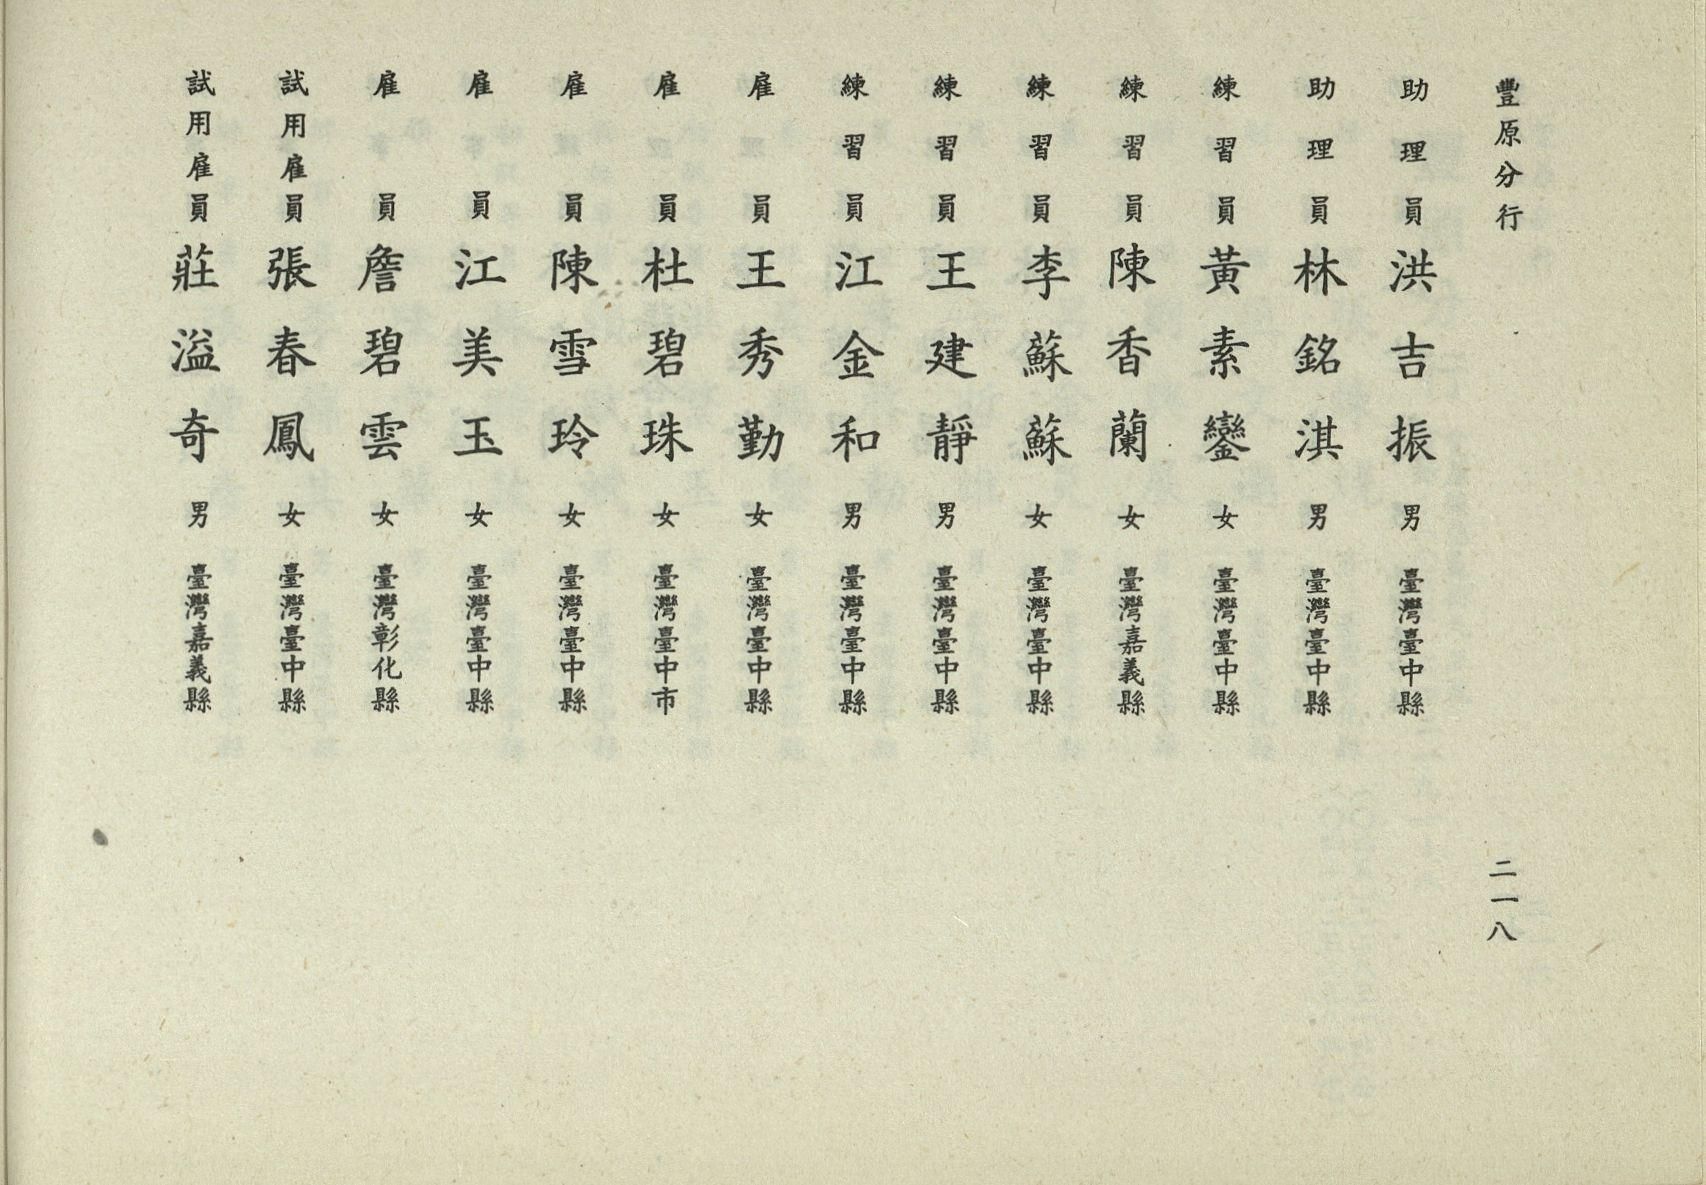 豐原分行
助理員洪吉振男臺灣臺中縣
助理員林銘淇男臺灣臺中縣
練習員黃素鑾女臺灣臺中縣
練習員陳香蘭女臺灣嘉義縣
練習員李蘇蘇女臺灣臺中縣
練習員王建靜男臺灣臺中縣
練習員江金和男臺灣臺中縣
雇員王秀勤女臺灣臺中縣
雇員杜碧珠女臺灣臺中市
雇員陳雪玲女臺灣臺中縣
雇員江美玉女臺灣臺中縣
雇員詹碧雲女臺灣彰化縣
試用雇員張春鳳女臺灣臺中縣
試用雇員莊溢奇男臺灣嘉義縣
二一八